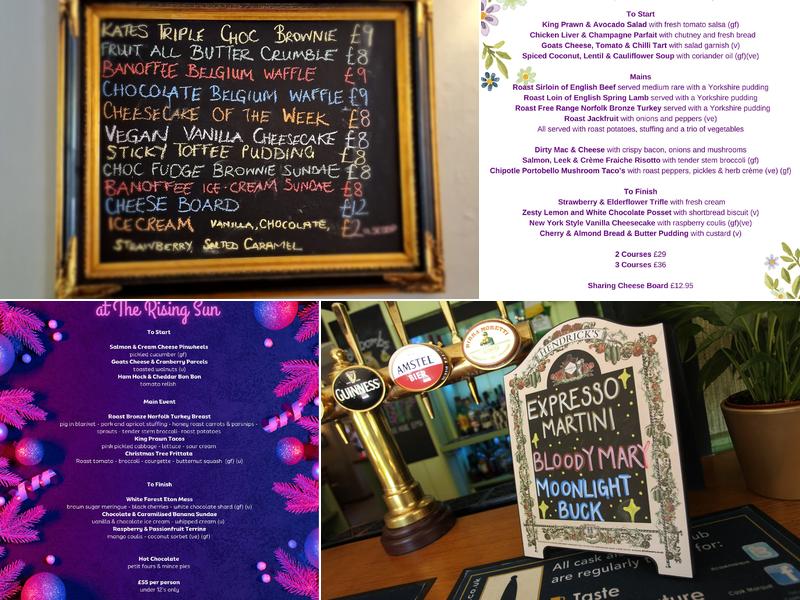 KATES TRIPLE CHOC BROWNIE £9
FRUIT ALL BUTTER CRUMBLE £8
BANOFFEE BELGIUM WAFFLE £9
CHOCOLATE BELGIUM WAFFLE £9
CHEESECAKE OF THE WEEK £8
VEGAN VANILLA CHEESECAKE £8
STICKY TOFFEE PUDDING £8
CHOC FUDGE BROWNIE SUNDAE £8
BANOFFEE ICE-CREAM SUNDAE £8
CHEESE BOARD £12
ICE CREAM VANILLA, CHOCOLATE, £2
STRAWBERRY, SALTED CARAMEL
To Start
King Prawn & Avocado Salad with fresh tomato salsa (gf)
Chicken Liver & Champagne Parfait with chutney and fresh bread
Goats Cheese, Tomato & Chilli Tart with salad garnish (v)
Spiced Coconut, Lentil & Cauliflower Soup with coriander oil (gf)(ve)
Mains
Roast Sirloin of English Beef served medium rare with a Yorkshire pudding
Roast Loin of English Spring Lamb served with a Yorkshire pudding
Roast Free Range Norfolk Bronze Turkey served with a Yorkshire pudding
Roast Jackfruit with onions and peppers (ve)
All served with roast potatoes, stuffing and a trio of vegetables
Dirty Mac & Cheese with crispy bacon, onions and mushrooms
Salmon, Leek & Crème Fraiche Risotto with tender stem broccoli (gf)
Chipotle Portobello Mushroom Taco's with roast peppers, pickles & herb crème (ve) (gf)
To Finish
Strawberry & Elderflower Trifle with fresh cream
Zesty Lemon and White Chocolate Posset with shortbread biscuit (v)
New York Style Vanilla Cheesecake with raspberry coulis (gf)(ve)
Cherry & Almond Bread & Butter Pudding with custard (v)
2 Courses £29
3 Courses £36
Sharing Cheese Board £12.95
at The Rising Sun
To Start
Salmon & Cream Cheese Pinwheels
pickled cucumber (gf)
Goats Cheese & Cranberry Parcels
toasted walnuts (v)
Ham Hock & Cheddar Bon Bon
tomato relish
Main Event
Roast Bronze Norfolk Turkey Breast
pig in blanket - pork and apricot stuffing - honey roast carrots & parsnips -
sprouts - tender stem broccoli - roast potatoes
King Prawn Tacos
pink pickled cabbage - lettuce - sour cream
Christmas Tree Frittata
Roast tomato - broccoli - courgette - butternut squash (gf) (v)
To Finish
White Forest Eton Mess
brown sugar meringue - black cherries - white chocolate shard (gf) (v)
Chocolate & Caramelised Banana Sundae
vanilla & chocolate ice cream - whipped cream (v)
Raspberry & Passionfruit Terrine
mango coulis - coconut sorbet (ve) (gf)
Hot Chocolate
petit fours & mince pies
£55 per person
under 12's only
GUINNESS
AMSTEL
BIER
BIRRA MORETTI
HENDRICK'S
EXPRESSO
MARTINI
BLOODY MARY
MOONLIGHT
BUCK
All cask
are regularly for:
Taste
.co.uk